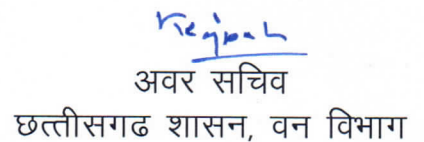 अवर सचिव
छत्तीसगढ शासन, वन विभाग